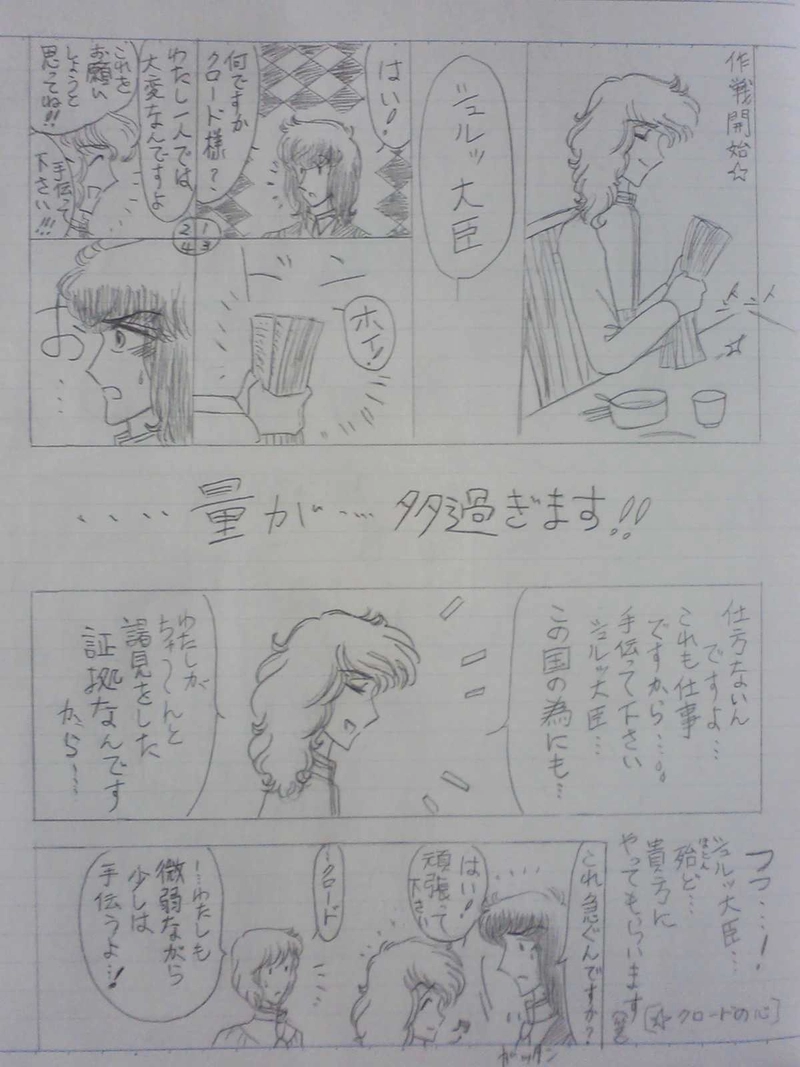 作戦開始☆
ジュルッ大臣
はい!
何ですか
クロード様?
わたし一人では
大変なんですよ
これを
お願い
しようと
思ってね!!
手伝って
下さい!!!
1
2
3
4
ホイ!
ドン
お…
….量が….多過ぎます!!
仕方ないん
ですよ…
これも仕事
ですから…。
手伝って下さい
ジュルッ大臣…
この国の為にも…
わたしが
ちゃ〜んと
謁見をした
証拠なんです
から…
フフ…!
ジュルッ大臣…
殆ど…
ほとん
貴方に
やってもらいます
[☆クロードの心]
これ急ぐんですか?
はい!
頑張って
下さい
ガッタン
クロード
…わたしも
微弱ながら
少しは
手伝うよ…!